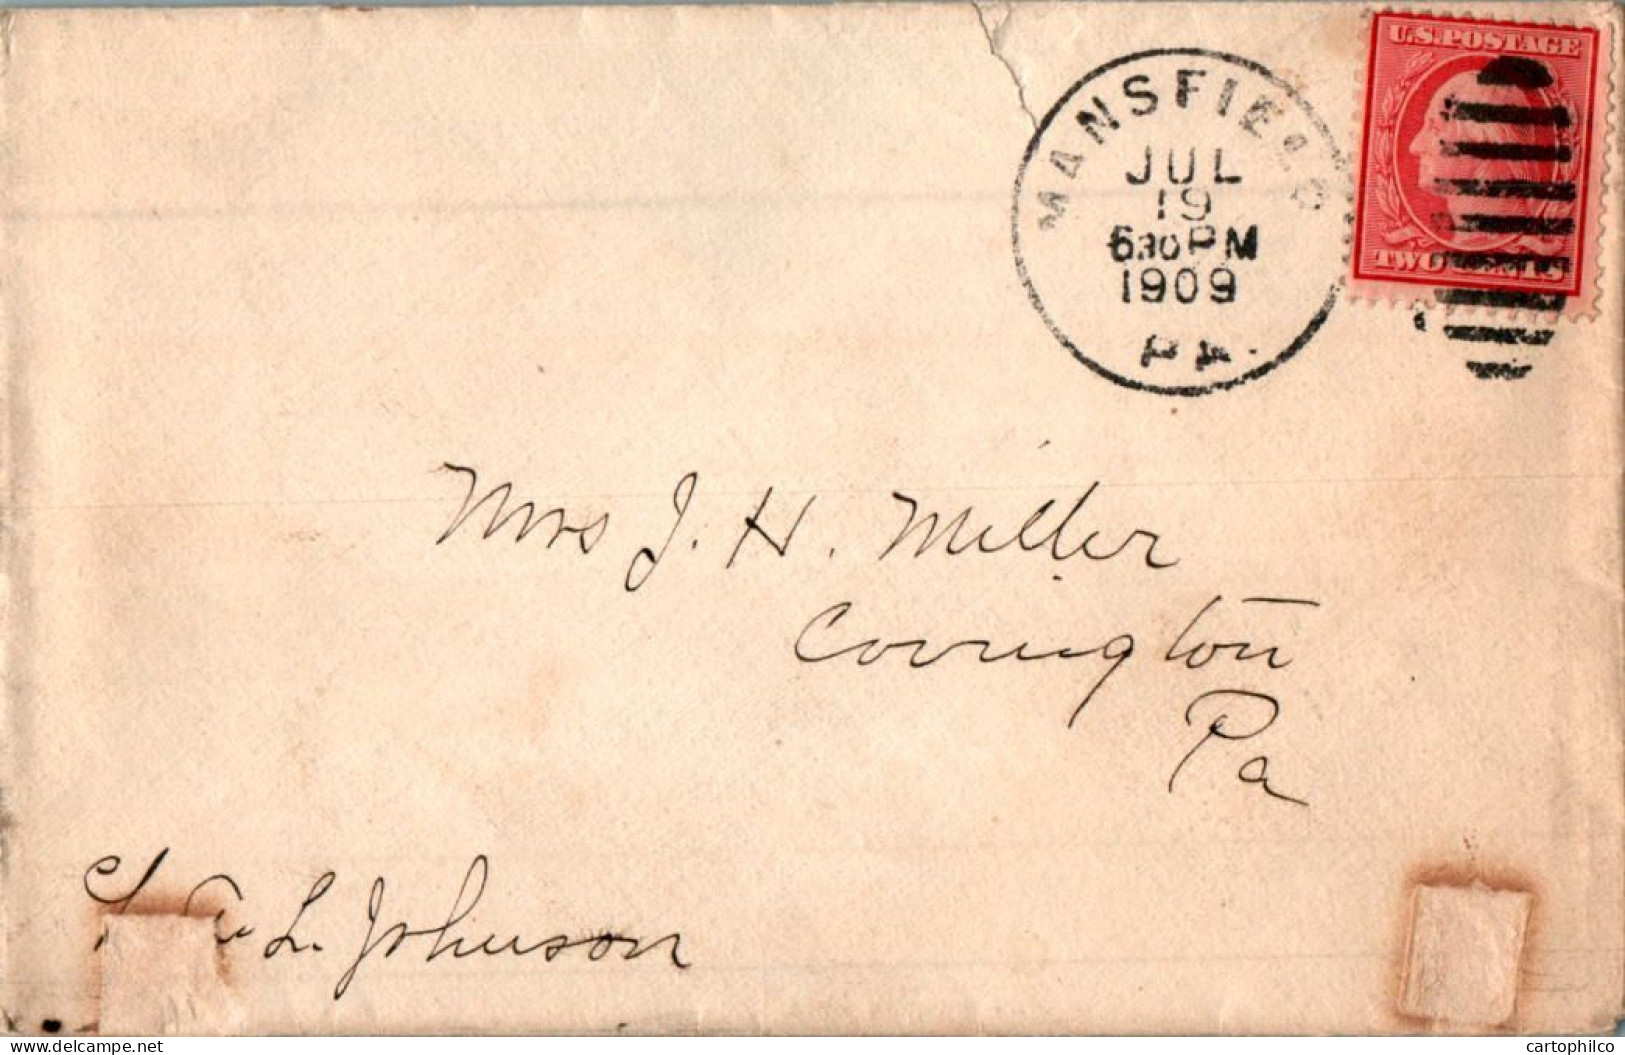 U.S. POSTAGE
TWO CENTS
MANSFIELD
JUL
19
630 PM
1909
PA.
Mrs J. H. Miller
Covington
Pa
c/o L. Johnson
delcampe.net
cartophilco